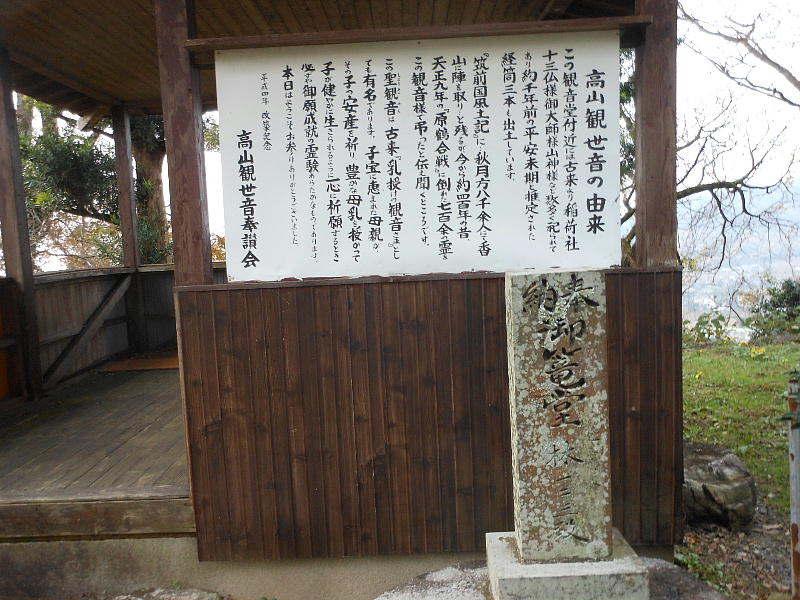 高山観世音の由来
この観音堂付近には古来より稲荷社
十三仏様御大師様山神様など数多く祀られて
あり約千年前の平安末期と推定された
経筒三本も出土しています。
『筑前国風土記』に秋月方八千余人にて香
山に陣を取しと残るが今から約四百年の昔
天正九年の『原鶴合戦』に倒れた七百余の霊を
この観音様で弔ったと伝え聞くところです。
この聖観音は古来『乳授けの観音さま』とし
ても有名であります。子宝に恵まれた母親が
その子の安産を祈り豊かな母乳を授かって
子が健やかに生きられるように一心に祈願するとき
必ずや御願成就の霊験あらたかなものであります。
本日はようこそお参りありがとうございました。
平成四年 改築記念
高山観世音奉讃会
奉納
御篭堂
林